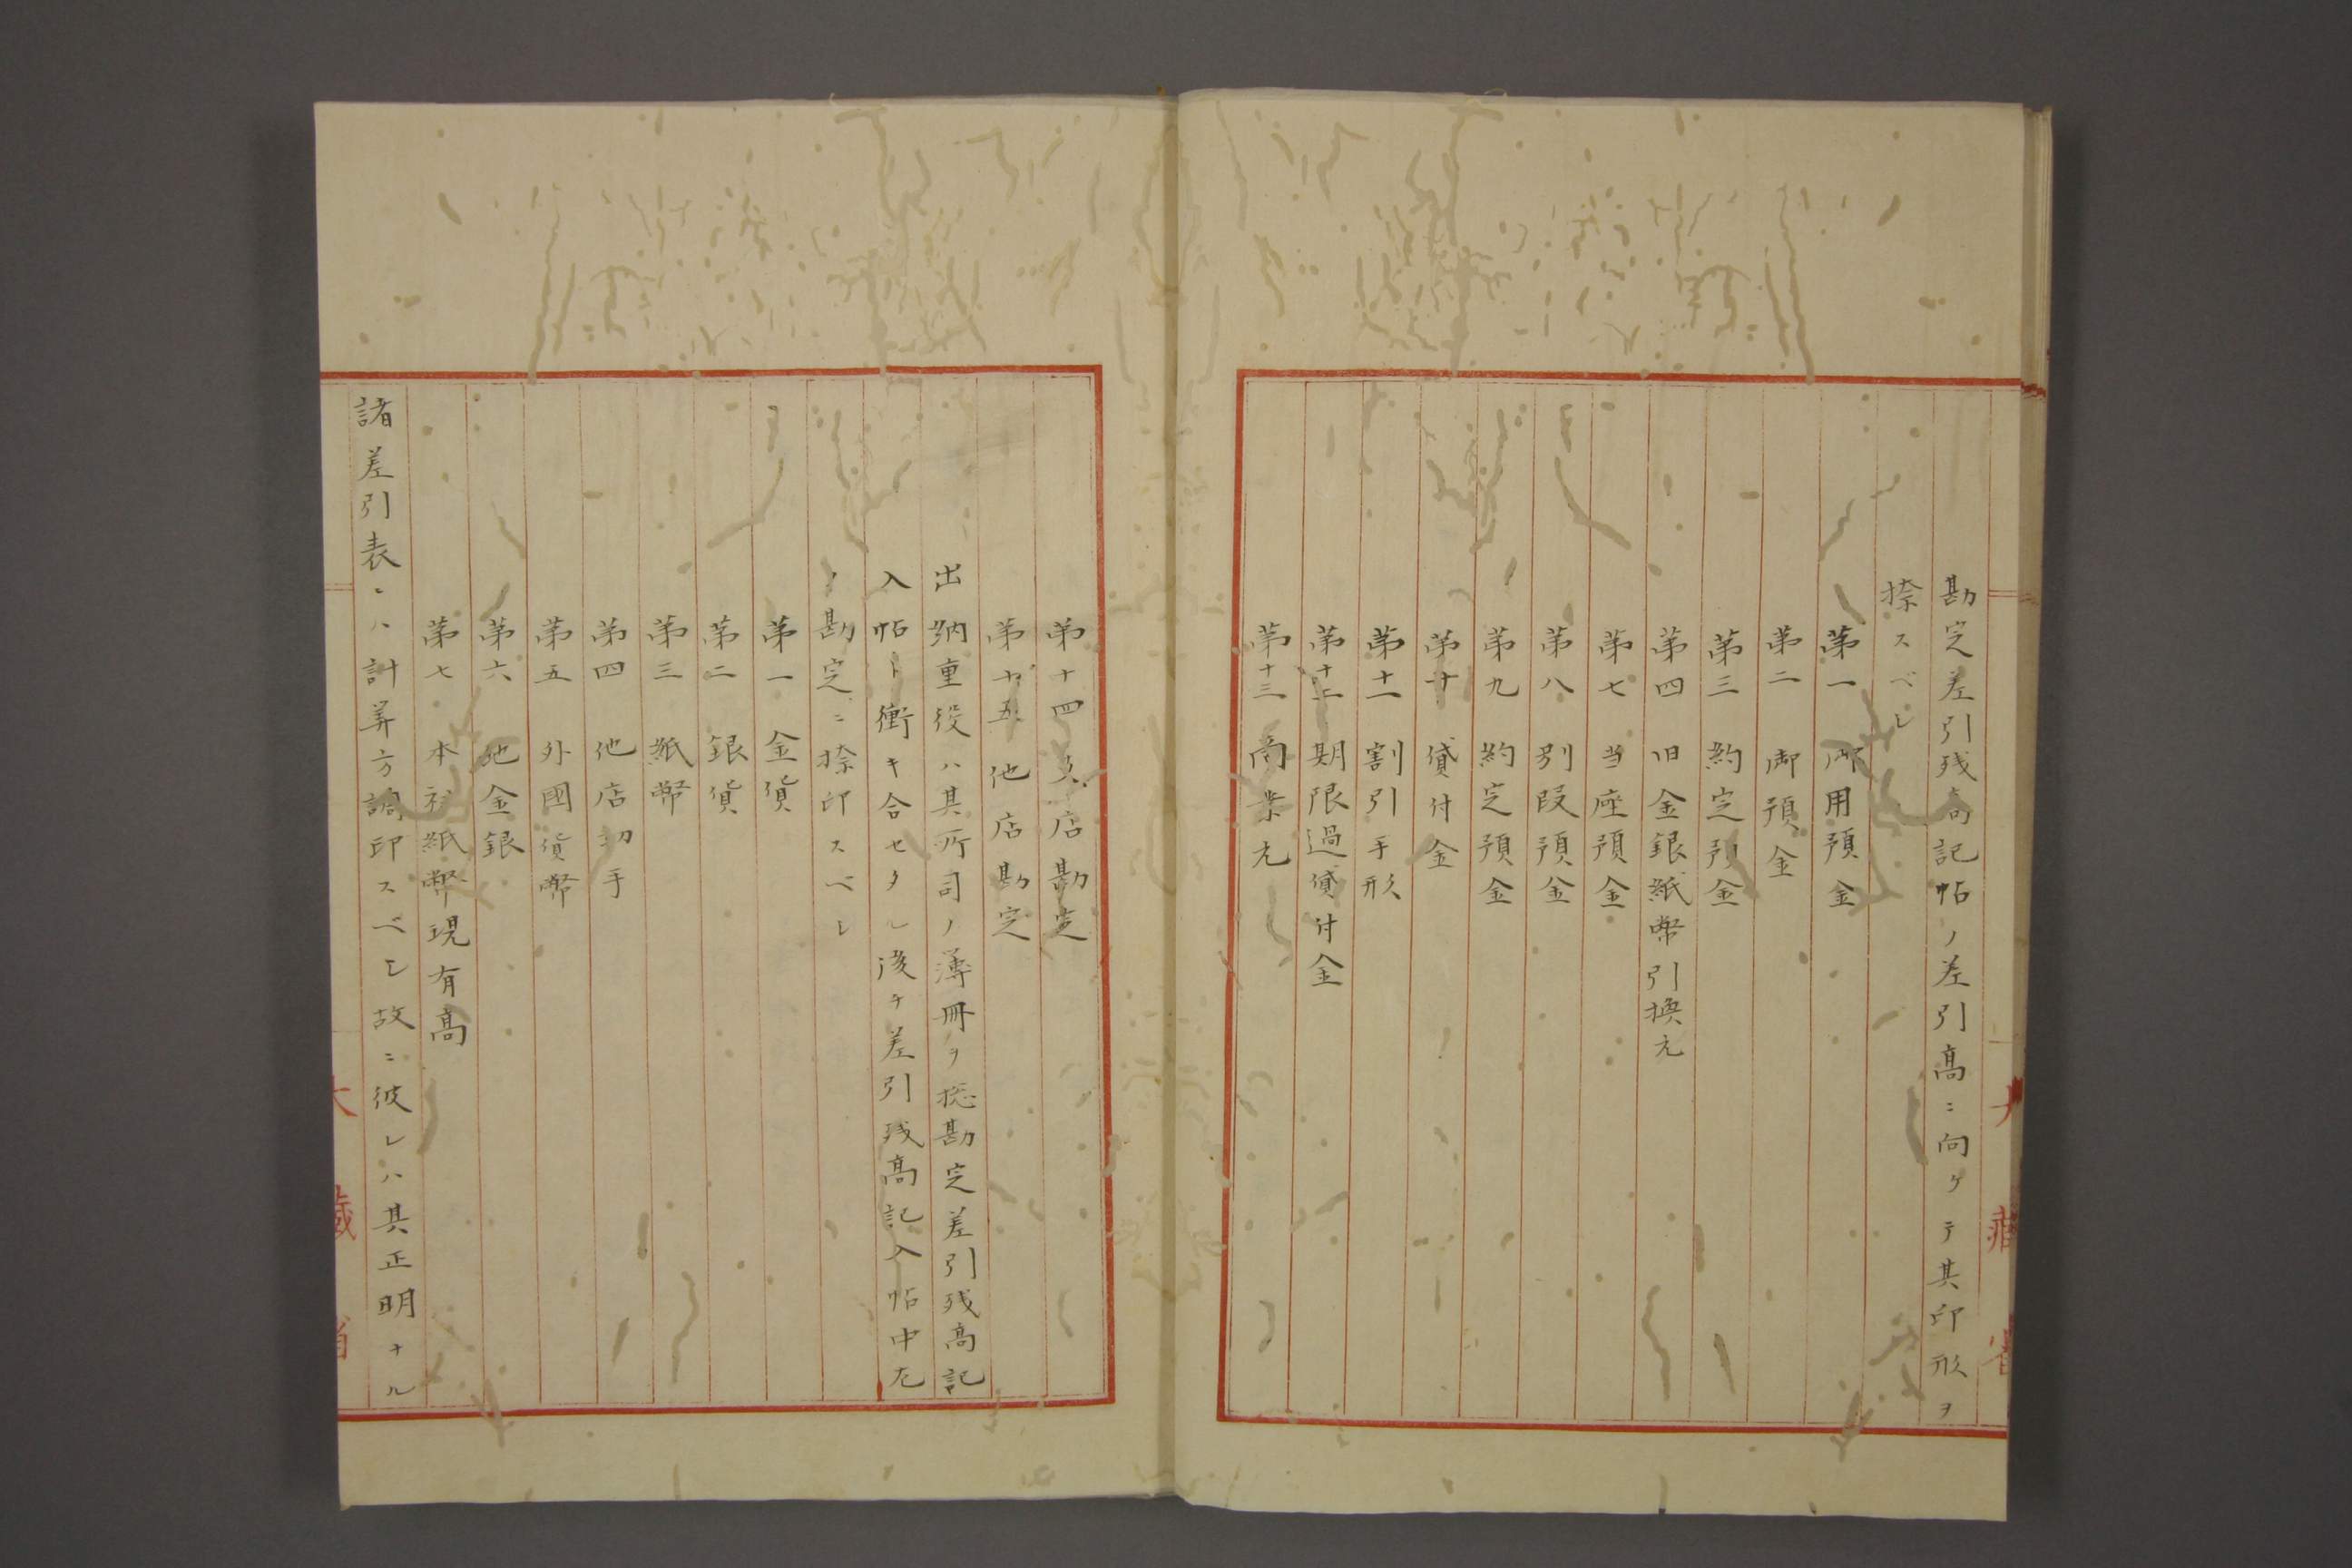 勘定差引残高記帖ノ差引高ニ向ケテ其印形ヲ
捺スベシ
第一　御用預金
第二　御預金
第三　約定預金
第四　旧金銀紙幣引換元
第七　当座預金
第八　別段預金
第九　約定預金
第十　貸付金
第十一　割引手形
第十二　期限過貸付金
第十三　商業元
第十四　支店勘定
第十五　他店勘定
出納重役ハ其所司ノ薄冊ヲ総勘定差引残高記
入帖ト衝キ合セタル後チ差引残高記入帖中左
ノ勘定ニ捺印スベシ
第一　金貨
第二　銀貨
第三　紙幣
第四　他店切手
第五　外國貨幣
第六　地金銀
第七　本社紙幣現有高
諸差引表ニハ計算方調印スベシ故ニ彼レハ其正明ナル
大藏省
大藏省